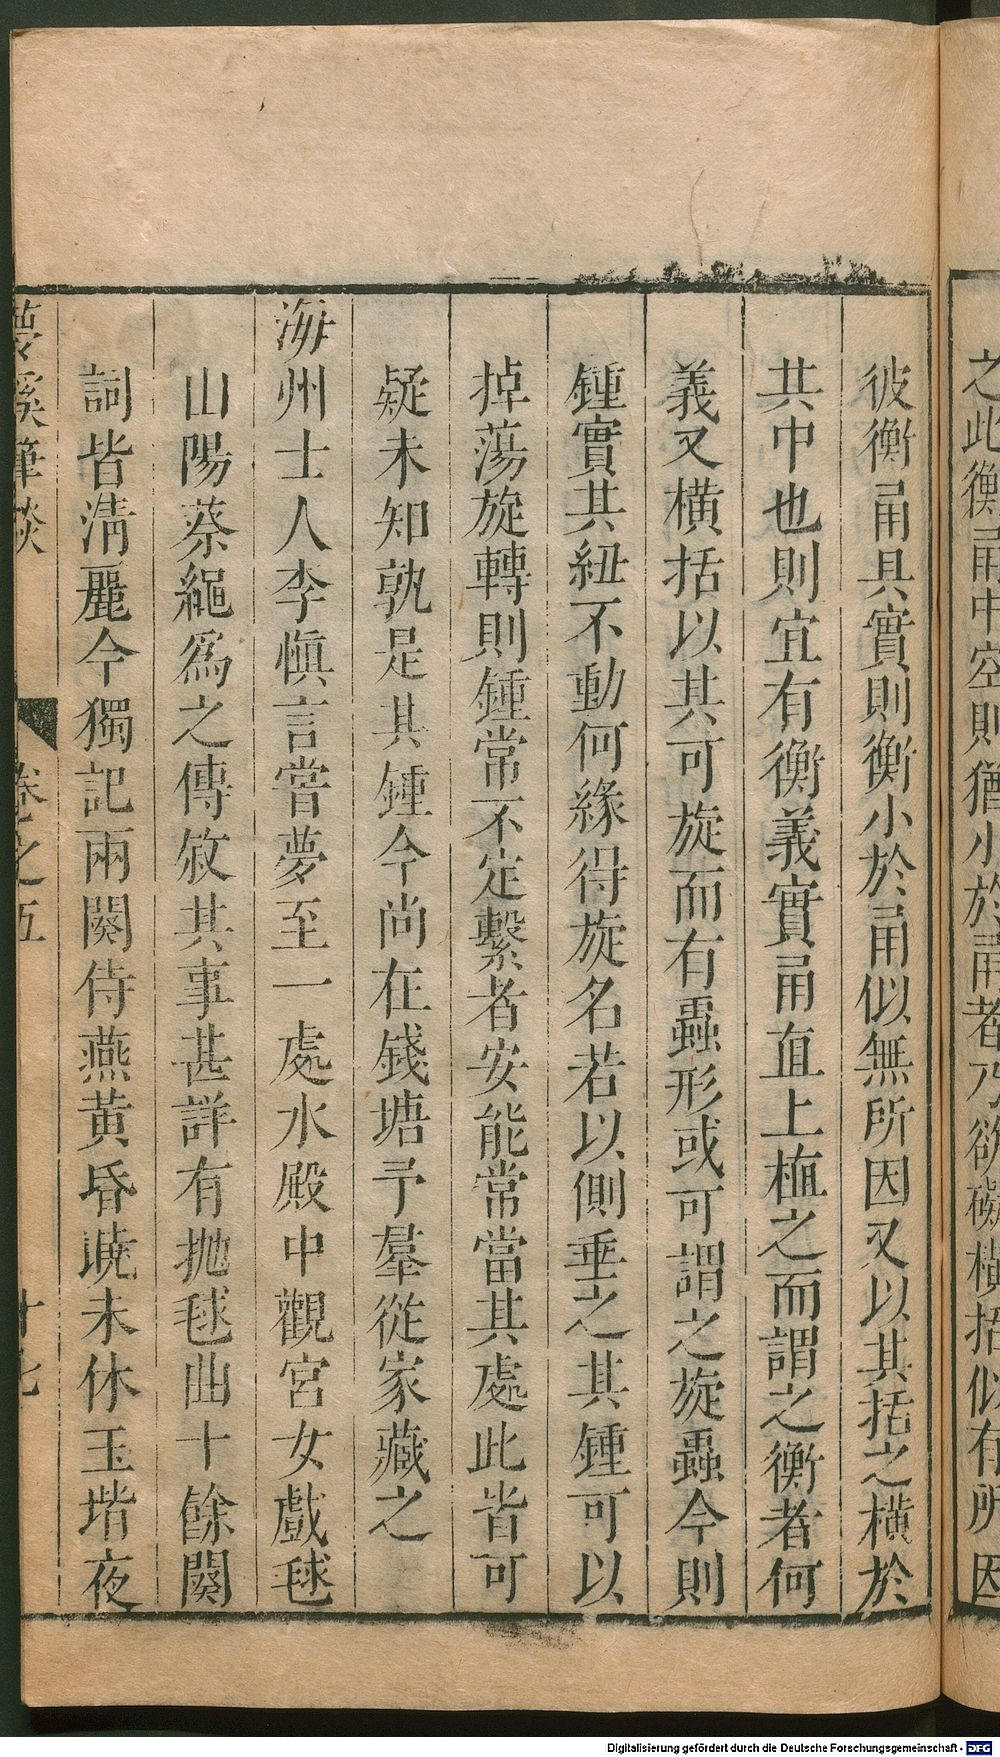 之此衡甬中空則猶小於甬者乃欲礙橫括似有所因
彼衡甬具實則衡小於甬似無所因又以其括之橫於
其中也則宜有衡義實甬直上植之而謂之衡者何
義又橫括以其可旋而有蟲形或可謂之旋蟲今則
鍾實其紐不動何緣得旋名若以側垂之其鍾可以
掉蕩旋轉則鍾常不定繫者安能常當其處此皆可
疑未知孰是其鍾今尚在錢塘予羣從家藏之
海州士人李慎言嘗夢至一處水殿中觀宮女戲毬
山陽蔡繩爲之傳敘其事甚詳有拋毬曲十餘闋
詞皆淸麗今獨記兩闋侍燕黃昏曉未休玉堦夜
夢溪筆談 卷之五 十七
Digitalisierung gefördert durch die Deutsche Forschungsgemeinschaft - DFG